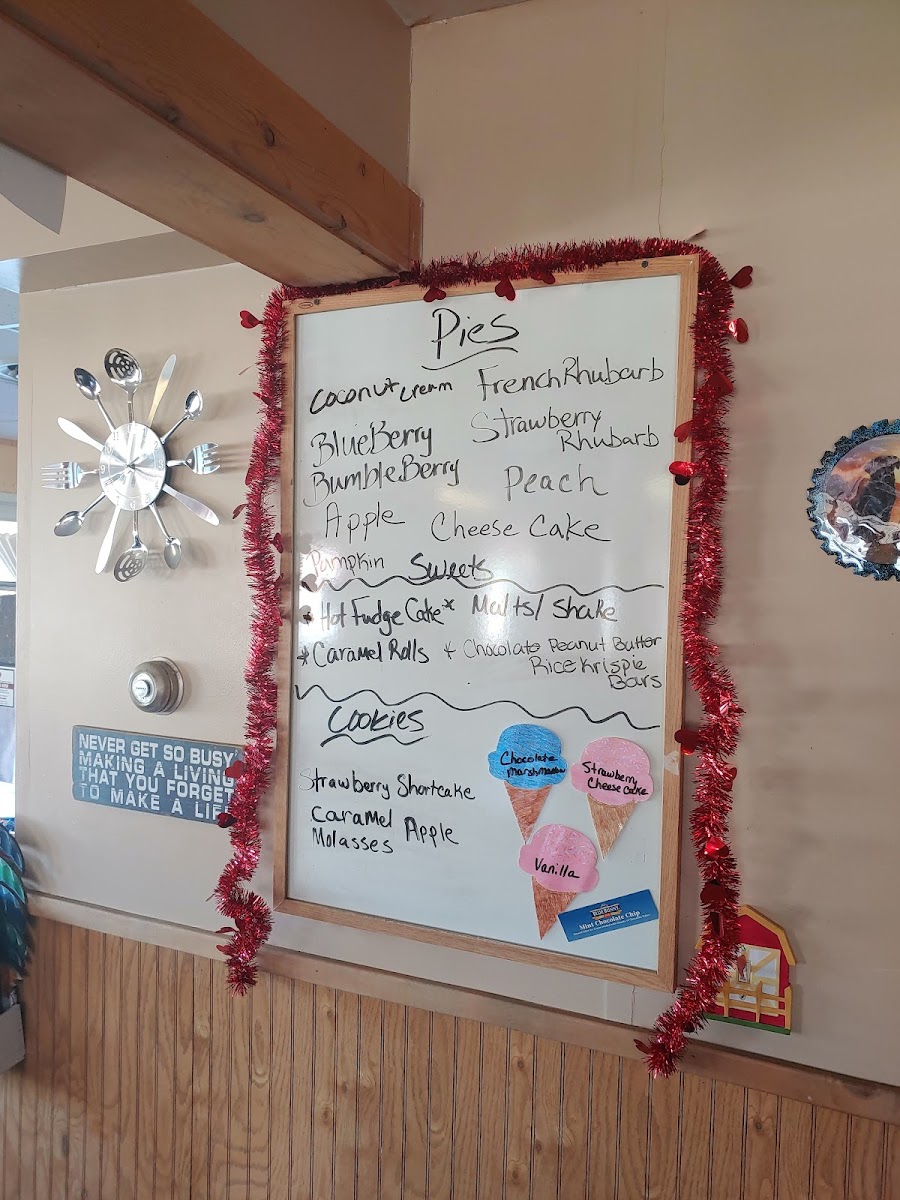 Pies
Coconut Cream
French Rhubarb
BlueBerry
Strawberry
Rhubarb
BumbleBerry
Peach
Apple
Cheese Cake
Pumpkin
Sweets
* Hot Fudge Cake
* Malts/ Shake
* Caramel Rolls
* Chocolate Peanut Butter
Rice Krispie
Bars
Cookies
Strawberry Shortcake
Caramel Apple
Molasses
Chocolate
Marshmallow
Strawberry
Cheese Cake
Vanilla
BLUE BUNNY
Mint Chocolate Chip
NEVER GET SO BUSY
MAKING A LIVING
THAT YOU FORGET
TO MAKE A LIFE